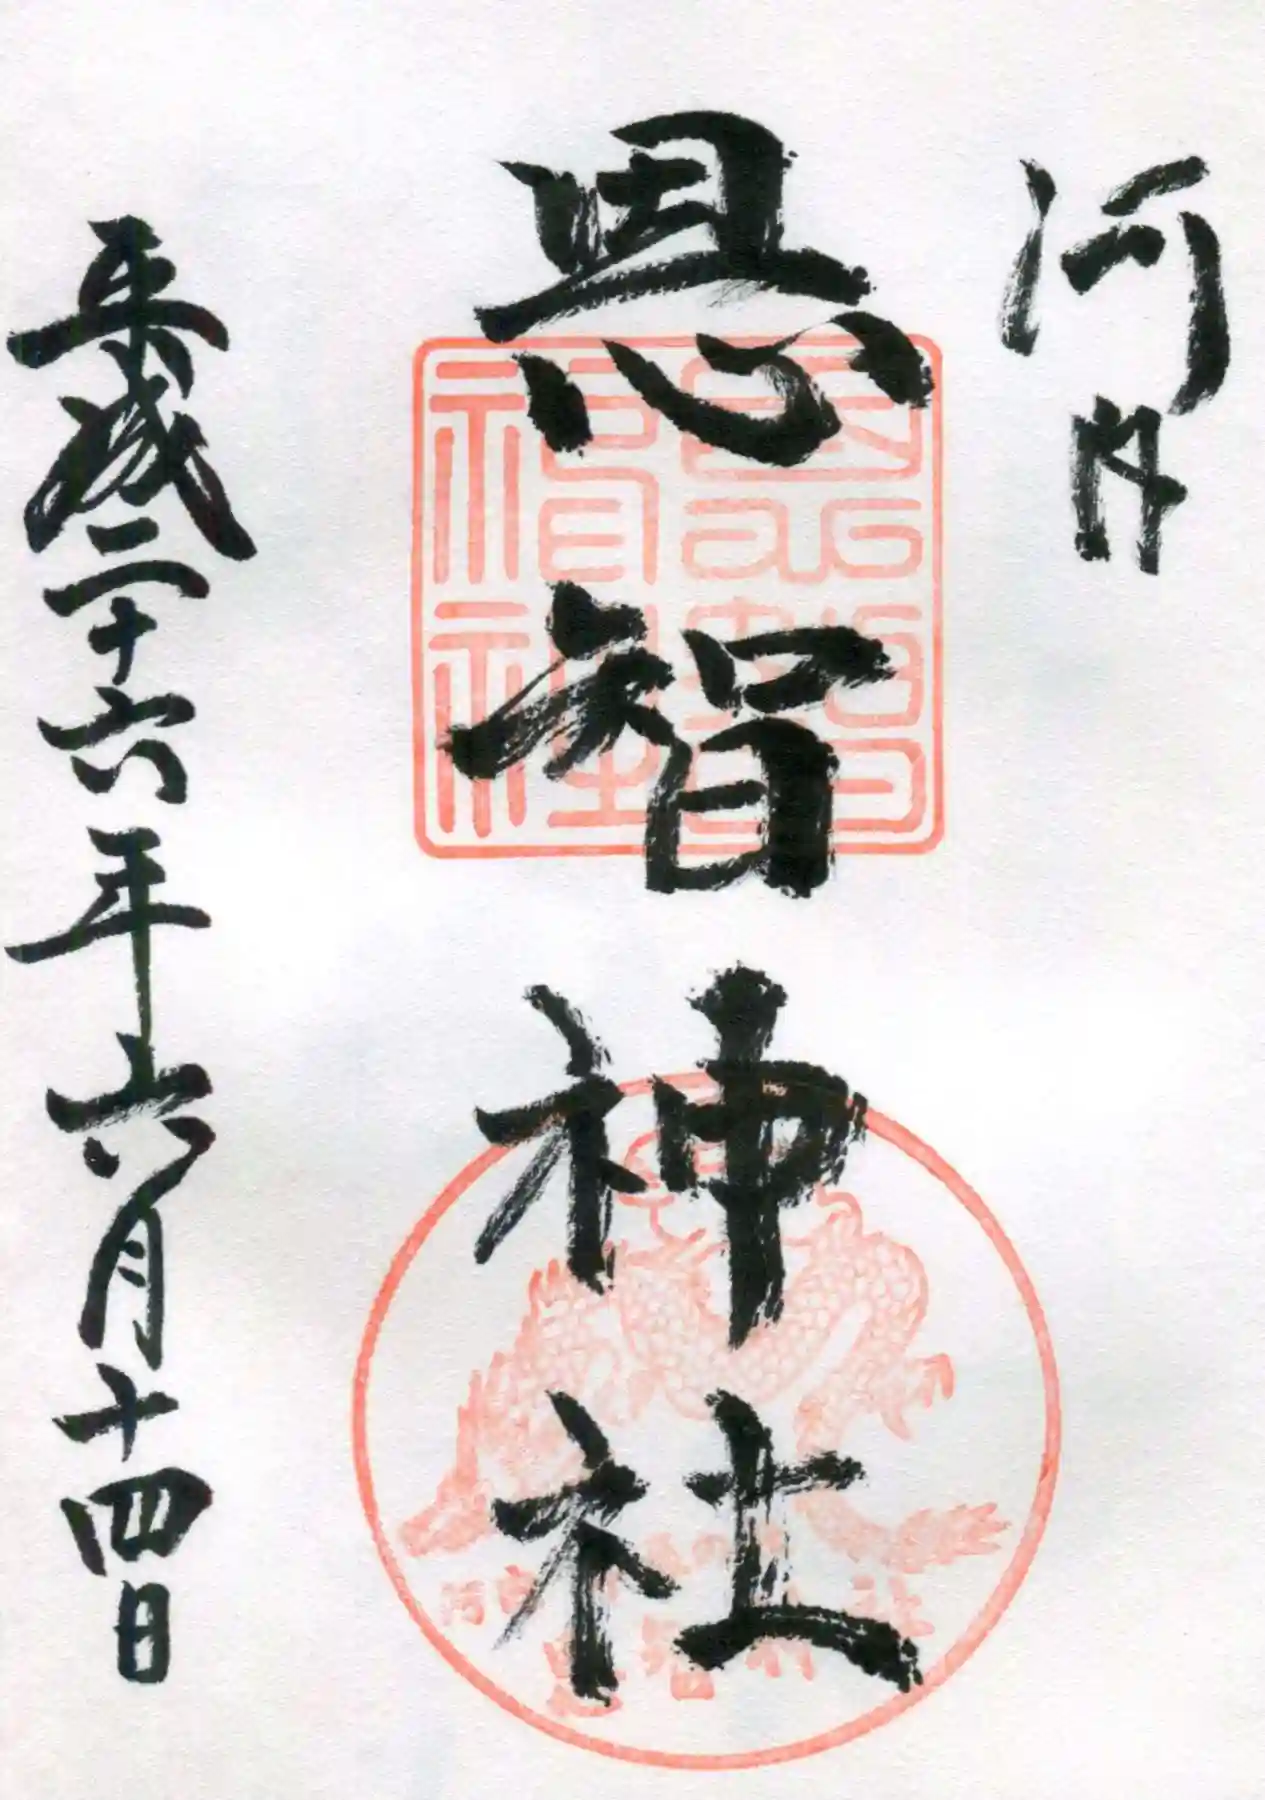 河内
恩智神社
平成二十六年六月十四日
恩智神社
河内 恩智神社